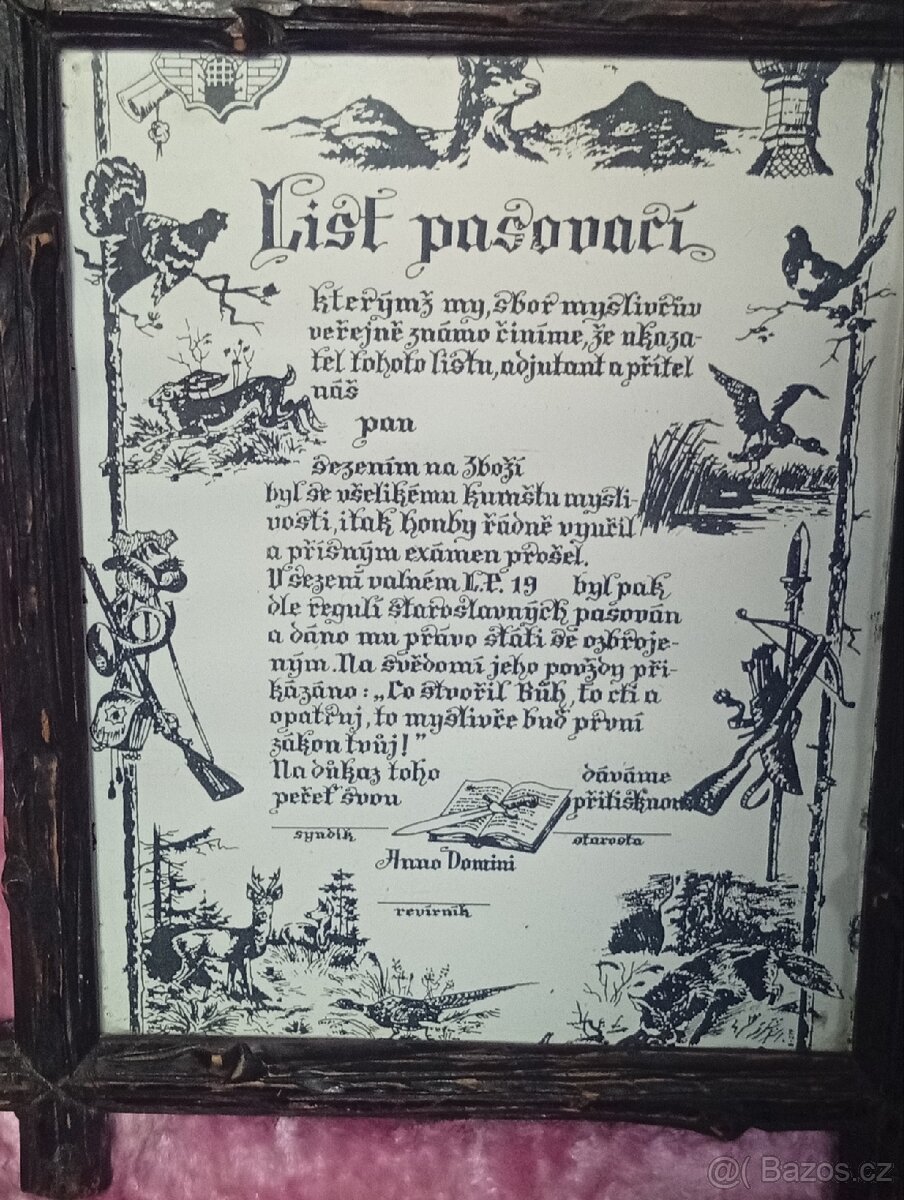 List pasovací
kterýmž my, sbor myslivcův
veřejně známo činíme, že ukaza-
tel tohoto listu, adjutant a přítel
náš
pan
sezením na Zboží
byl se všelikému kumštu mysli-
vosti, i tak honby řádně vyučil
a přísným exámen prošel.
V sezení valném L.P. 19 byl pak
dle regulí staroslavných pasován
a dáno mu právo státi se ozbroje-
ným. Na svědomí jeho povždy při-
kázáno: „Co stvořil Bůh, to cti a
opatruj, to myslivče buď první
zákon tvůj!"
Na důkaz toho dáváme
pečeť svou přitisknou
syndik starosta
Anno Domini
revírník
@( Bazos.cz